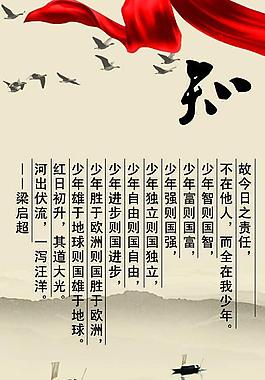 知
故今日之责任，
不在他人，而全在我少年。
少年智则国智，
少年富则国富，
少年强则国强，
少年独立则国独立，
少年自由则国自由，
少年进步则国进步，
少年胜于欧洲则国胜于欧洲，
少年雄于地球则国雄于地球。
红日初升，其道大光。
河出伏流，一泻汪洋。
——梁启超